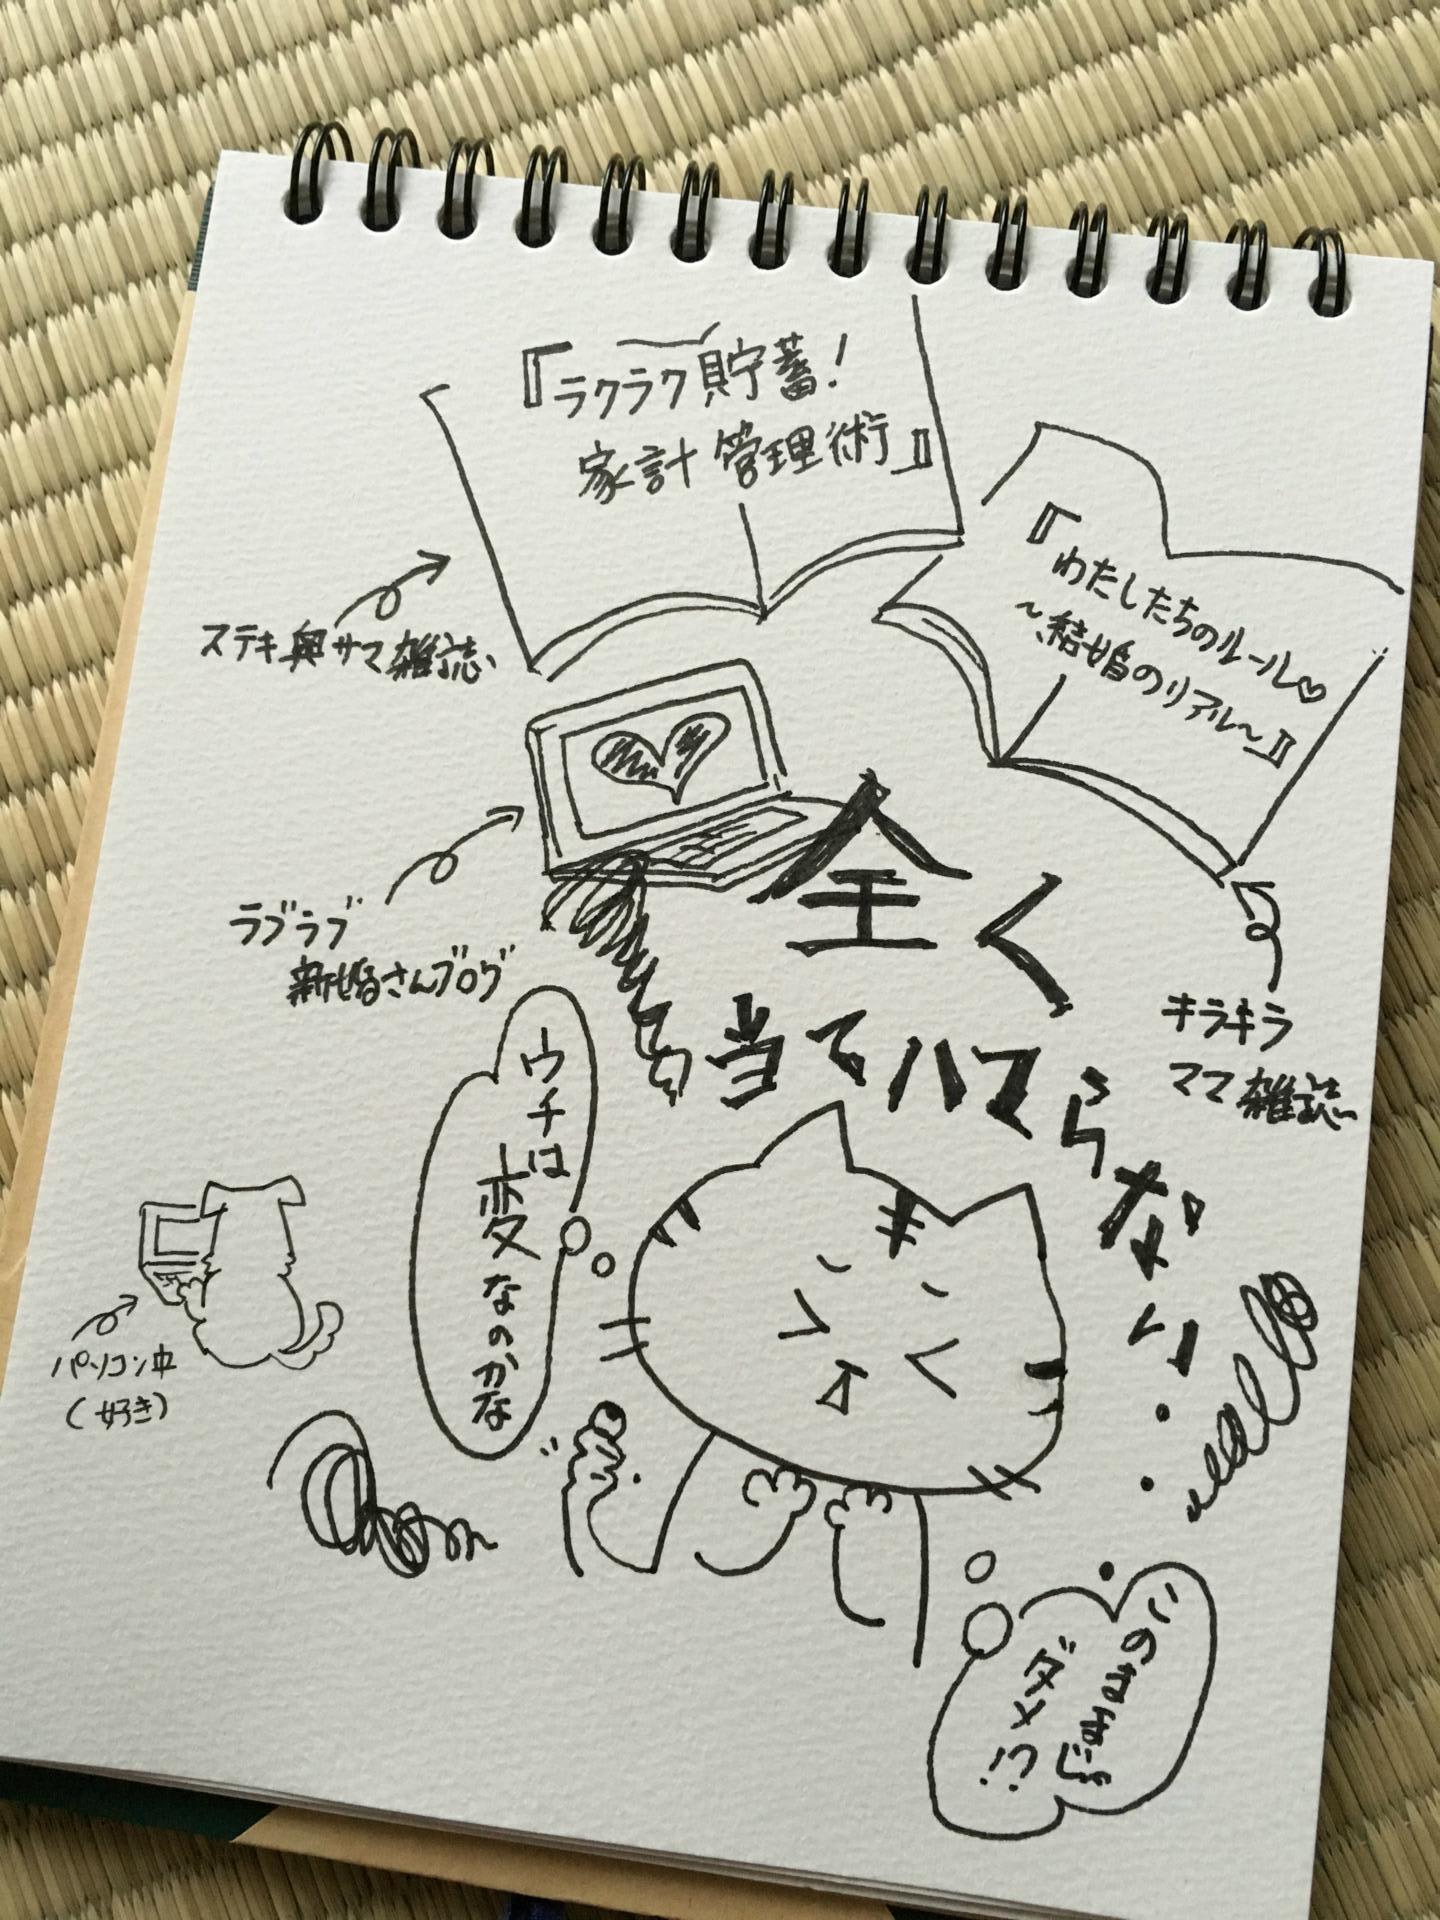 『ラクラク貯蓄！
家計管理術』
ステキ奥サマ雑誌
『わたしたちのルール♡
〜結婚のリアル〜』
キラキラ
ママ雑誌
ラブラブ
新婚さんブログ
全く
当てハマらない・・・
ウチは
変なのかな
パソコン中
（好き）
このままじゃ
ダメ！？